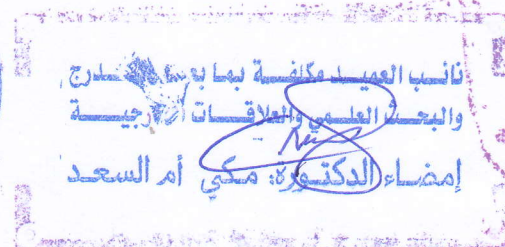 نائب العميد مكلفة بما بعد التدرج
والبحث العلمي والعلاقات الخارجية
إمضاء الدكتورة: مكي أم السعد